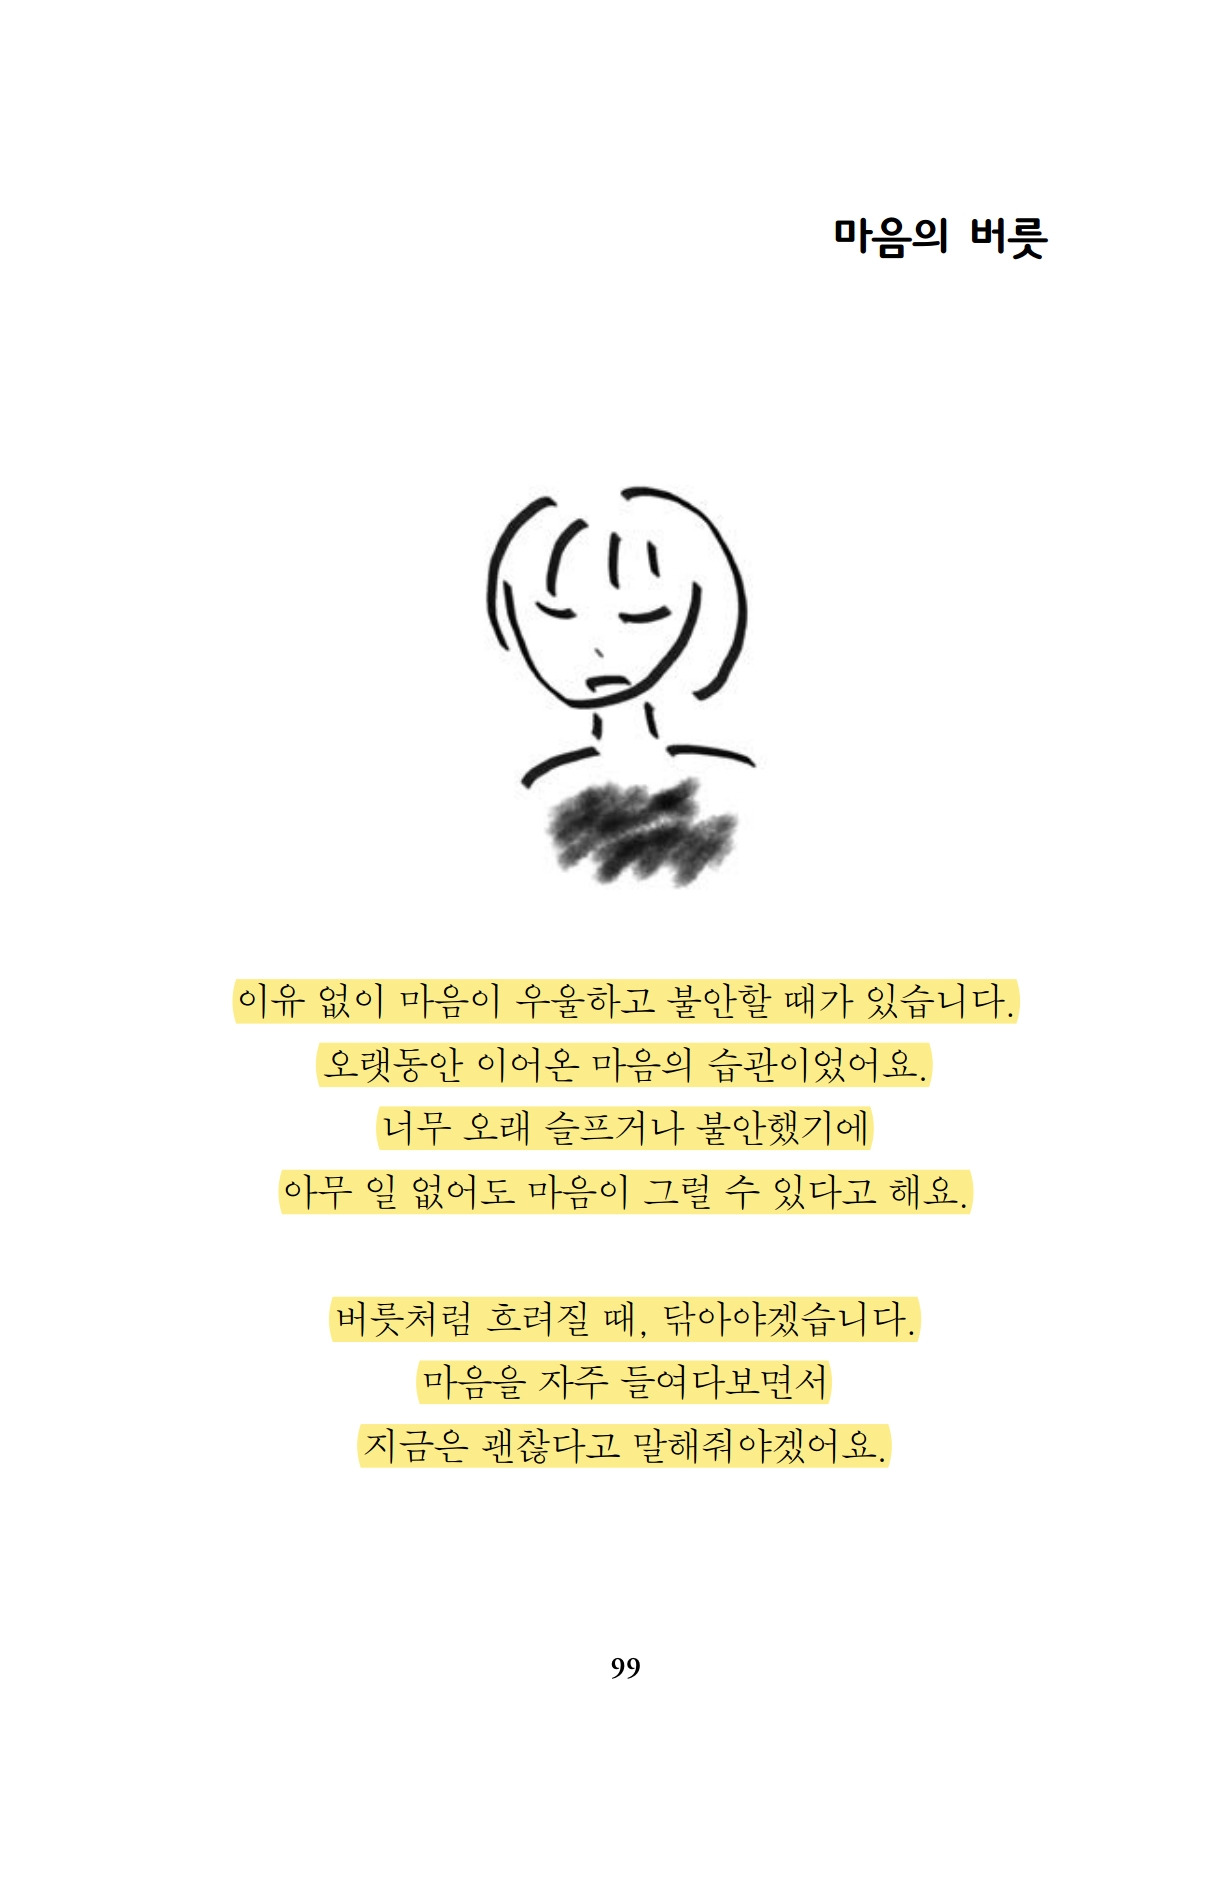 마음의 버릇
이유 없이 마음이 우울하고 불안할 때가 있습니다.
오랫동안 이어온 마음의 습관이었어요.
너무 오래 슬프거나 불안했기에
아무 일 없어도 마음이 그럴 수 있다고 해요.
버릇처럼 흐려질 때, 닦아야겠습니다.
마음을 자주 들여다보면서
지금은 괜찮다고 말해줘야겠어요.
99